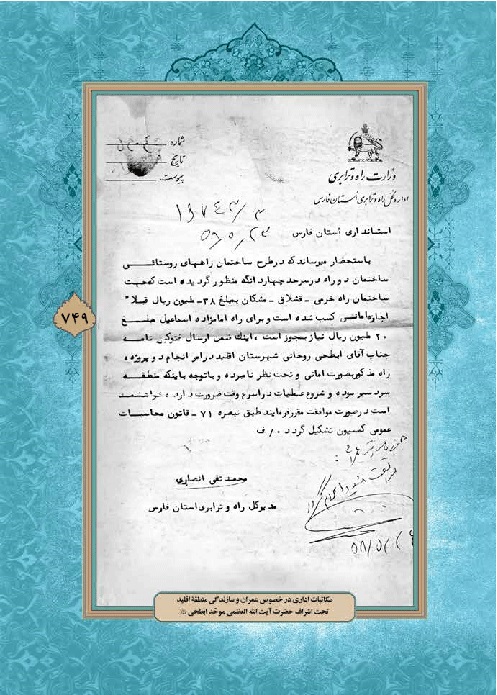 شماره
تاریخ
پیوست
وزارت راه و ترابری
اداره کل راه و ترابری استان فارس
استانداری استان فارس
باستحضار میرساند که در طرح ساختمان راههای روستائی
ساختمان دو راه در سرحد چهاردانگه منظور گردیده است که جهت
ساختمان راه خرمی - قشلاق - مشکان بمبلغ ۳۸ ملیون ریال قبلا"
اجازه امانی کسب شده است و برای راه امامزاده اسماعیل مبلغ
۲۰ ملیون ریال نیاز بمجوز است ، اینک ضمن ارسال فتوکپی نامه
جناب آقای ابطحی روحانی شهرستان اقلید در امر انجام دو پروژه
راه مذکور بصورت امانی و تحت نظر نامبرده و باتوجه باینکه منطقه
سردسیر بوده و شروع عملیات در اسرع وقت ضرورت دارد ، خواهشمند
است در صورت موافقت مقرر فرمایند طبق تبصره ۷۱ - قانون محاسبات
عمومی کمسیون تشکیل گردد ۰/ ف
محمد تقی انصاری
مدیرکل راه و ترابری استان فارس
۷۴۹
مکاتبات اداری در خصوص عمران و سازندگی منطقهٔ اقلید
تحت اشراف حضرت آیت الله العظمی موحد ابطحی